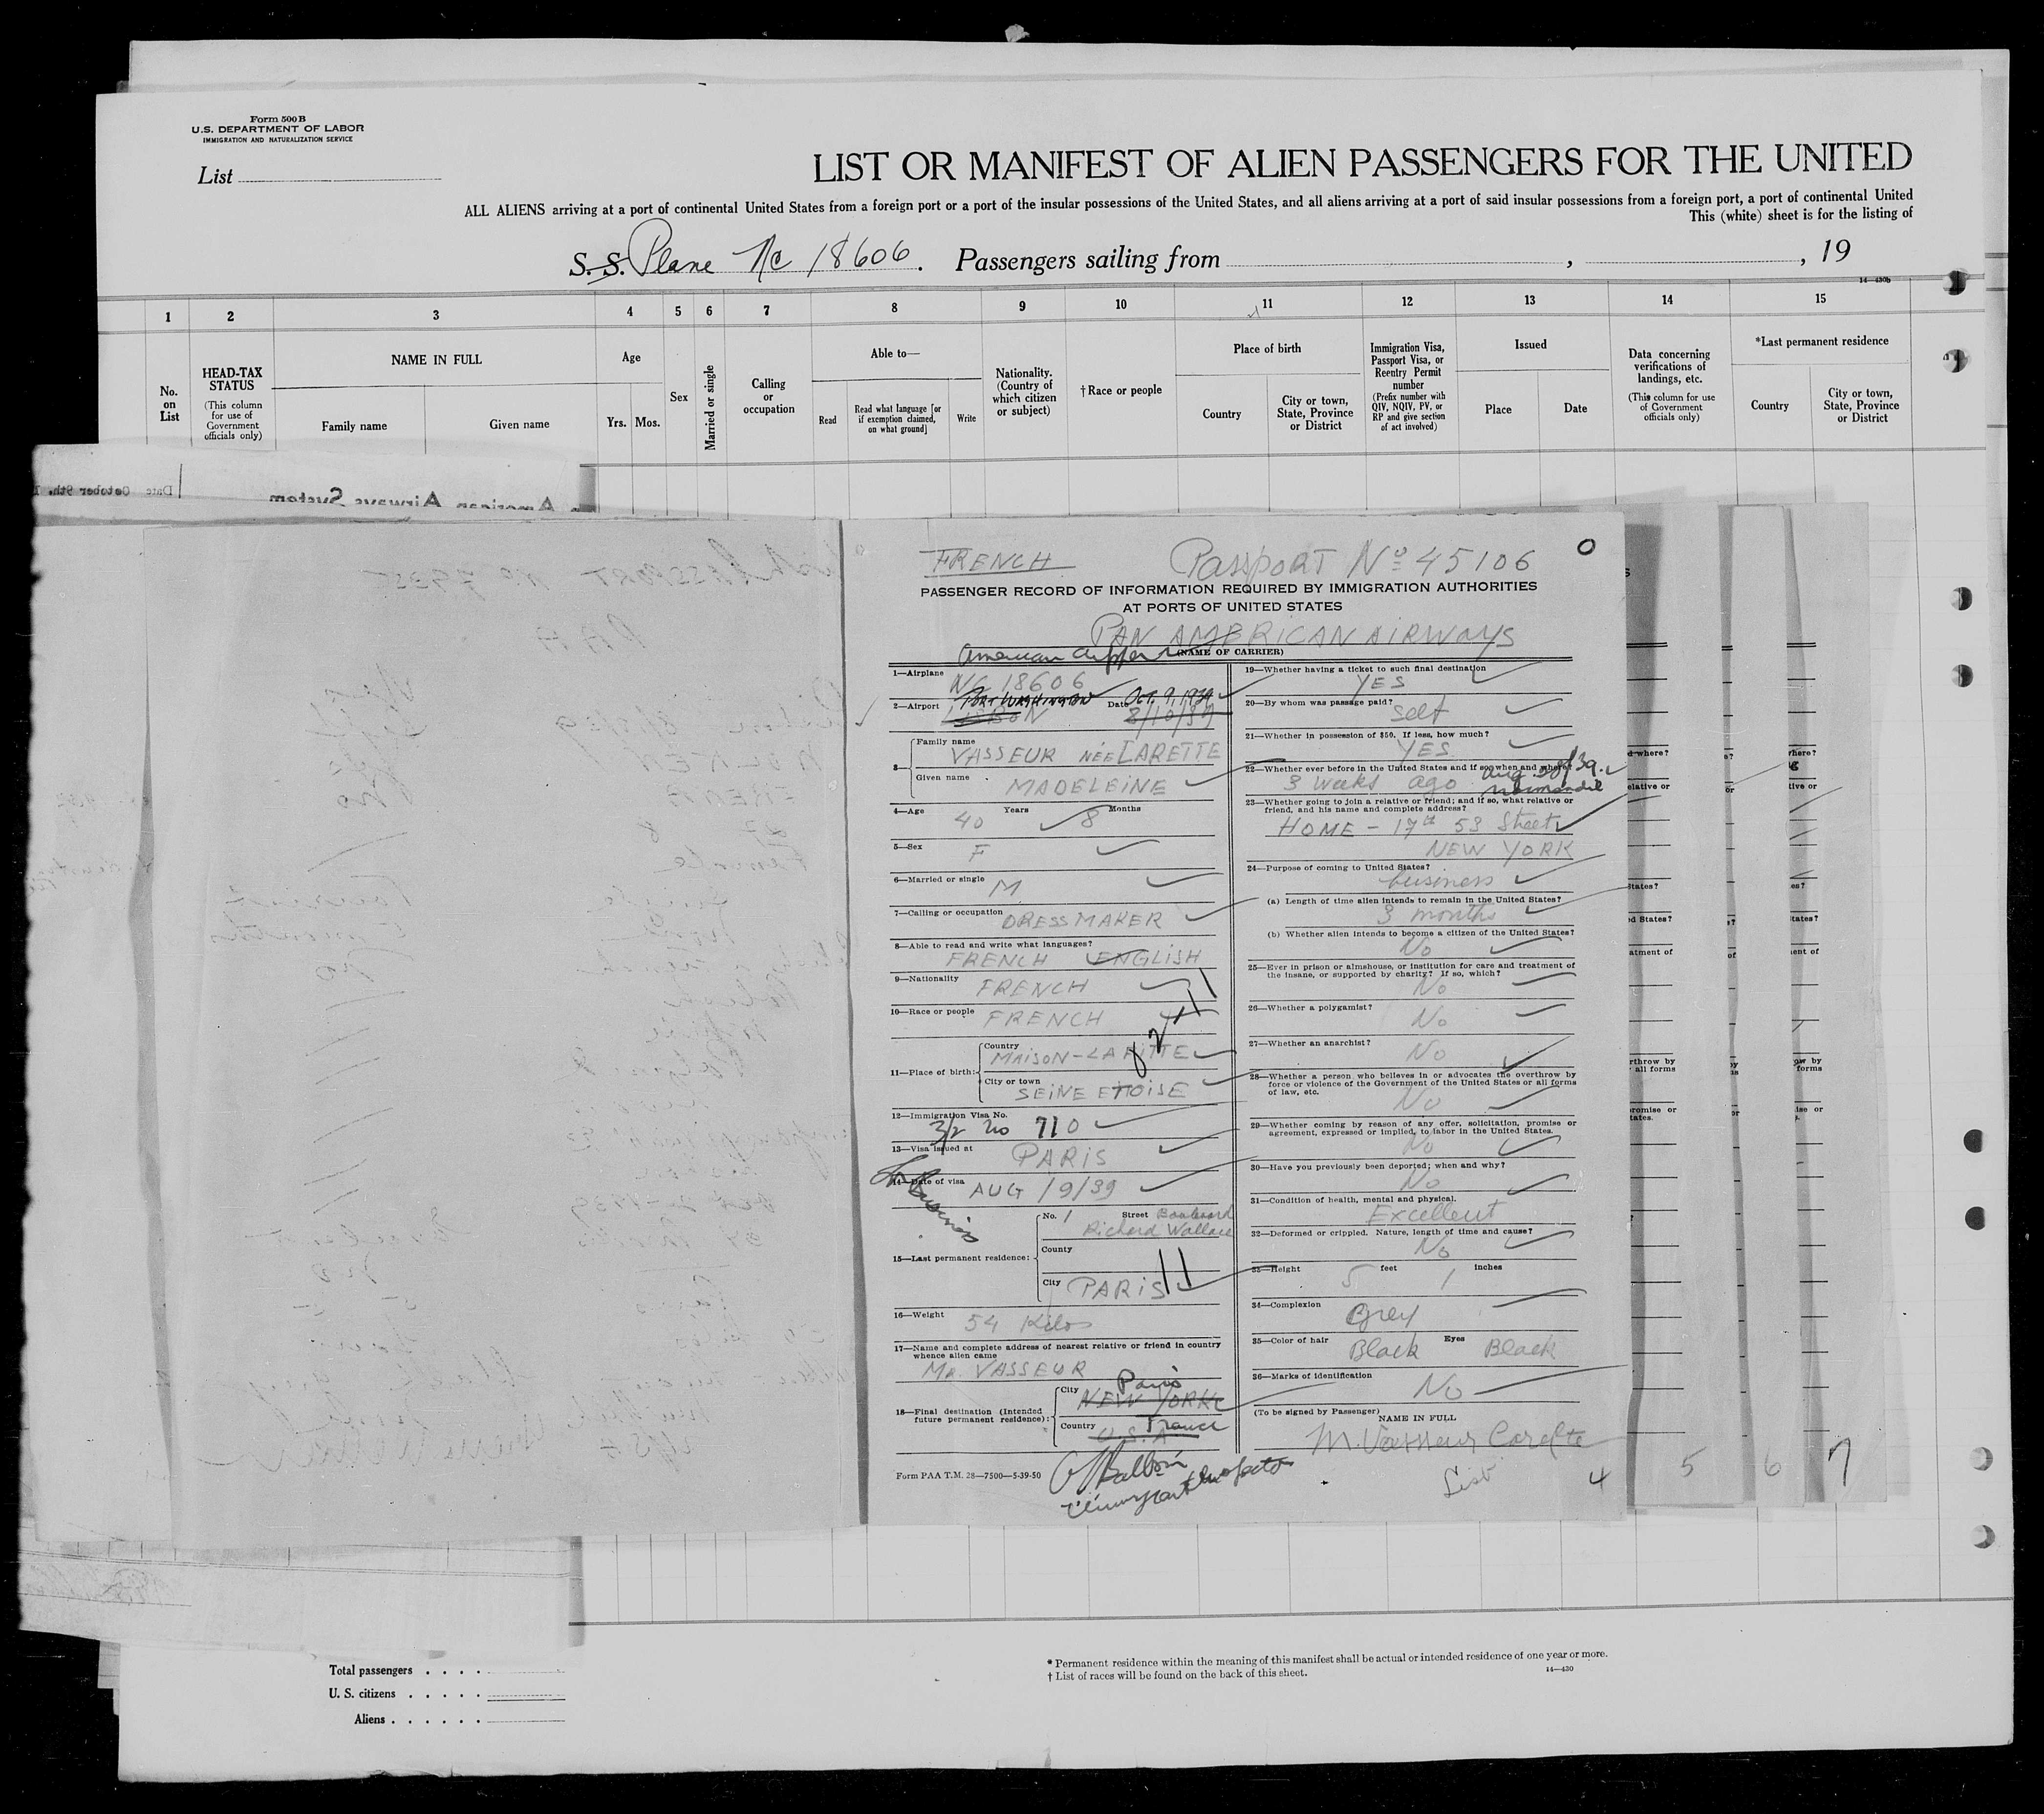 Form 500 B
U.S. DEPARTMENT OF LABOR
IMMIGRATION AND NATURALIZATION SERVICE
List
LIST OR MANIFEST OF ALIEN PASSENGERS FOR THE UNITED
ALL ALIENS arriving at a port of continental United States from a foreign port or a port of the insular possessions of the United States, and all aliens arriving at a port of said insular possessions from a foreign port, a port of continental United
This (white) sheet is for the listing of
S. S. Plane Nc 18606. Passengers sailing from , , 19
14—430b
1 2 3 4 5 6 7 8 9 10 11 12 13 14 15
No. on List
HEAD-TAX STATUS
(This column for use of Government officials only)
NAME IN FULL
Family name
Given name
Age
Yrs. Mos.
Sex
Married or single
Calling or occupation
Able to—
Read
Read what language [or if exemption claimed, on what ground]
Write
Nationality. (Country of which citizen or subject)
†Race or people
Place of birth
Country
City or town, State, Province or District
Immigration Visa, Passport Visa, or Reentry Permit number
(Prefix number with QIV, NQIV, PV, or RP and give section of act involved)
Issued
Place
Date
Data concerning verifications of landings, etc.
(This column for use of Government officials only)
*Last permanent residence
Country
City or town, State, Province or District
Date October 9th,
American Airways System
FRENCH Passport No 45106
PASSENGER RECORD OF INFORMATION REQUIRED BY IMMIGRATION AUTHORITIES
AT PORTS OF UNITED STATES
PAN AMERICAN AIRWAYS
American Clipper
(NAME OF CARRIER)
1—Airplane NC 18606
2—Airport PORT WASHINGTON Date OCT. 9, 1939
LISBON 8/10/39
3— Family name
VASSEUR NÉE LARETTE
Given name
MADELEINE
4—Age 40 Years 8 Months
5—Sex F
6—Married or single M
7—Calling or occupation DRESSMAKER
8—Able to read and write what languages?
FRENCH ENGLISH
9—Nationality FRENCH
10—Race or people FRENCH
11—Place of birth: Country
MAISON-LAFITTE
City or town
SEINE ET OISE
12—Immigration Visa No.
3/2 No 710
13—Visa issued at PARIS
14—Date of visa AUG /9/39
Business
15—Last permanent residence: No. 1 Street Boulevard
Richard Wallace
County
City PARIS
16—Weight 54 Kilos
17—Name and complete address of nearest relative or friend in country
whence alien came
Mr. VASSEUR
18—Final destination (Intended
future permanent residence): City Paris
NEW YORK
Country France
U.S.A.
Form PAA T.M. 28—7500—5-39-50
19—Whether having a ticket to such final destination
YES
20—By whom was passage paid?
self
21—Whether in possession of $50. If less, how much?
YES
22—Whether ever before in the United States and if so, when and where?
3 weeks ago Aug 30/39.
Normandie
23—Whether going to join a relative or friend; and if so, what relative or
friend, and his name and complete address?
HOME - 17th 53 Street
NEW YORK
24—Purpose of coming to United States?
business
(a) Length of time alien intends to remain in the United States?
3 months
(b) Whether alien intends to become a citizen of the United States?
No
25—Ever in prison or almshouse, or institution for care and treatment of
the insane, or supported by charity? If so, which?
No
26—Whether a polygamist?
No
27—Whether an anarchist?
No
28—Whether a person who believes in or advocates the overthrow by
force or violence of the Government of the United States or all forms
of law, etc.
No
29—Whether coming by reason of any offer, solicitation, promise or
agreement, expressed or implied, to labor in the United States.
No
30—Have you previously been deported; when and why?
No
31—Condition of health, mental and physical.
Excellent
32—Deformed or crippled. Nature, length of time and cause?
No
33—Height 5 feet 1 inches
34—Complexion Grey
35—Color of hair Black Eyes Black
36—Marks of identification
No
(To be signed by Passenger)
NAME IN FULL
M. Vasseur
List 4 5 6 7
Total passengers
U. S. citizens
Aliens
* Permanent residence within the meaning of this manifest shall be actual or intended residence of one year or more.
† List of races will be found on the back of this sheet.
14—430